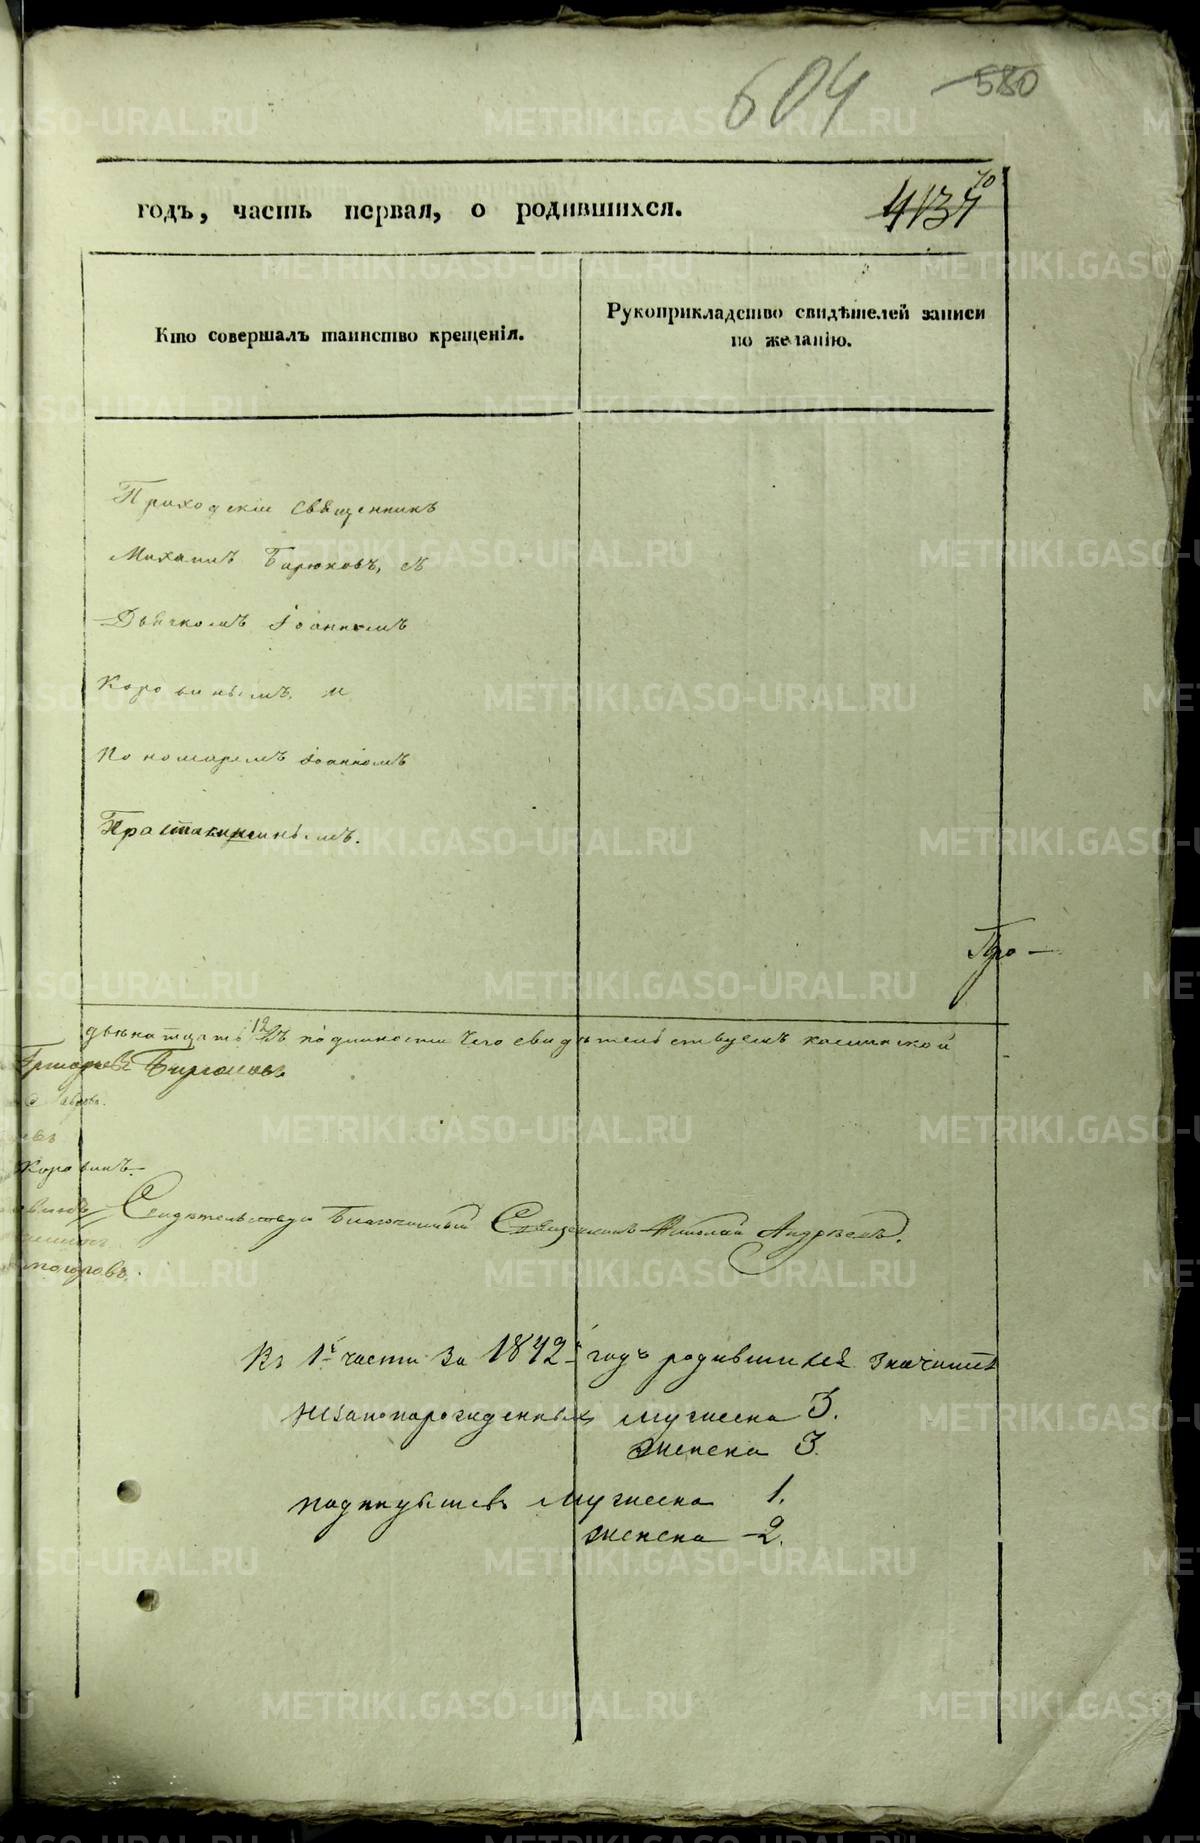 604
580
годъ, часть первая, о родившихся.
4137
70
Кто совершалъ таинство крещенія.
Рукоприкладство свидѣтелей записи
по желанію.
Приходскій Священникъ
Михаилъ Бирюковъ, съ
Дьячкомъ Іоанномъ
Коровинымъ и
пономаремъ Іоанномъ
Про-
двенатцать 12 Въ подлинности чего свидѣтельствуемъ
Григорьевъ Бирюковъ
Коровинъ.
Свидетельствую Благочинный Священникъ Николай Андреевъ.
Въ 1й части за 1842й годъ родившихся значитъ
мужеска 3.
женска 3.
мужеска 1.
женска 2.
METRIKI.GASO-URAL.RU